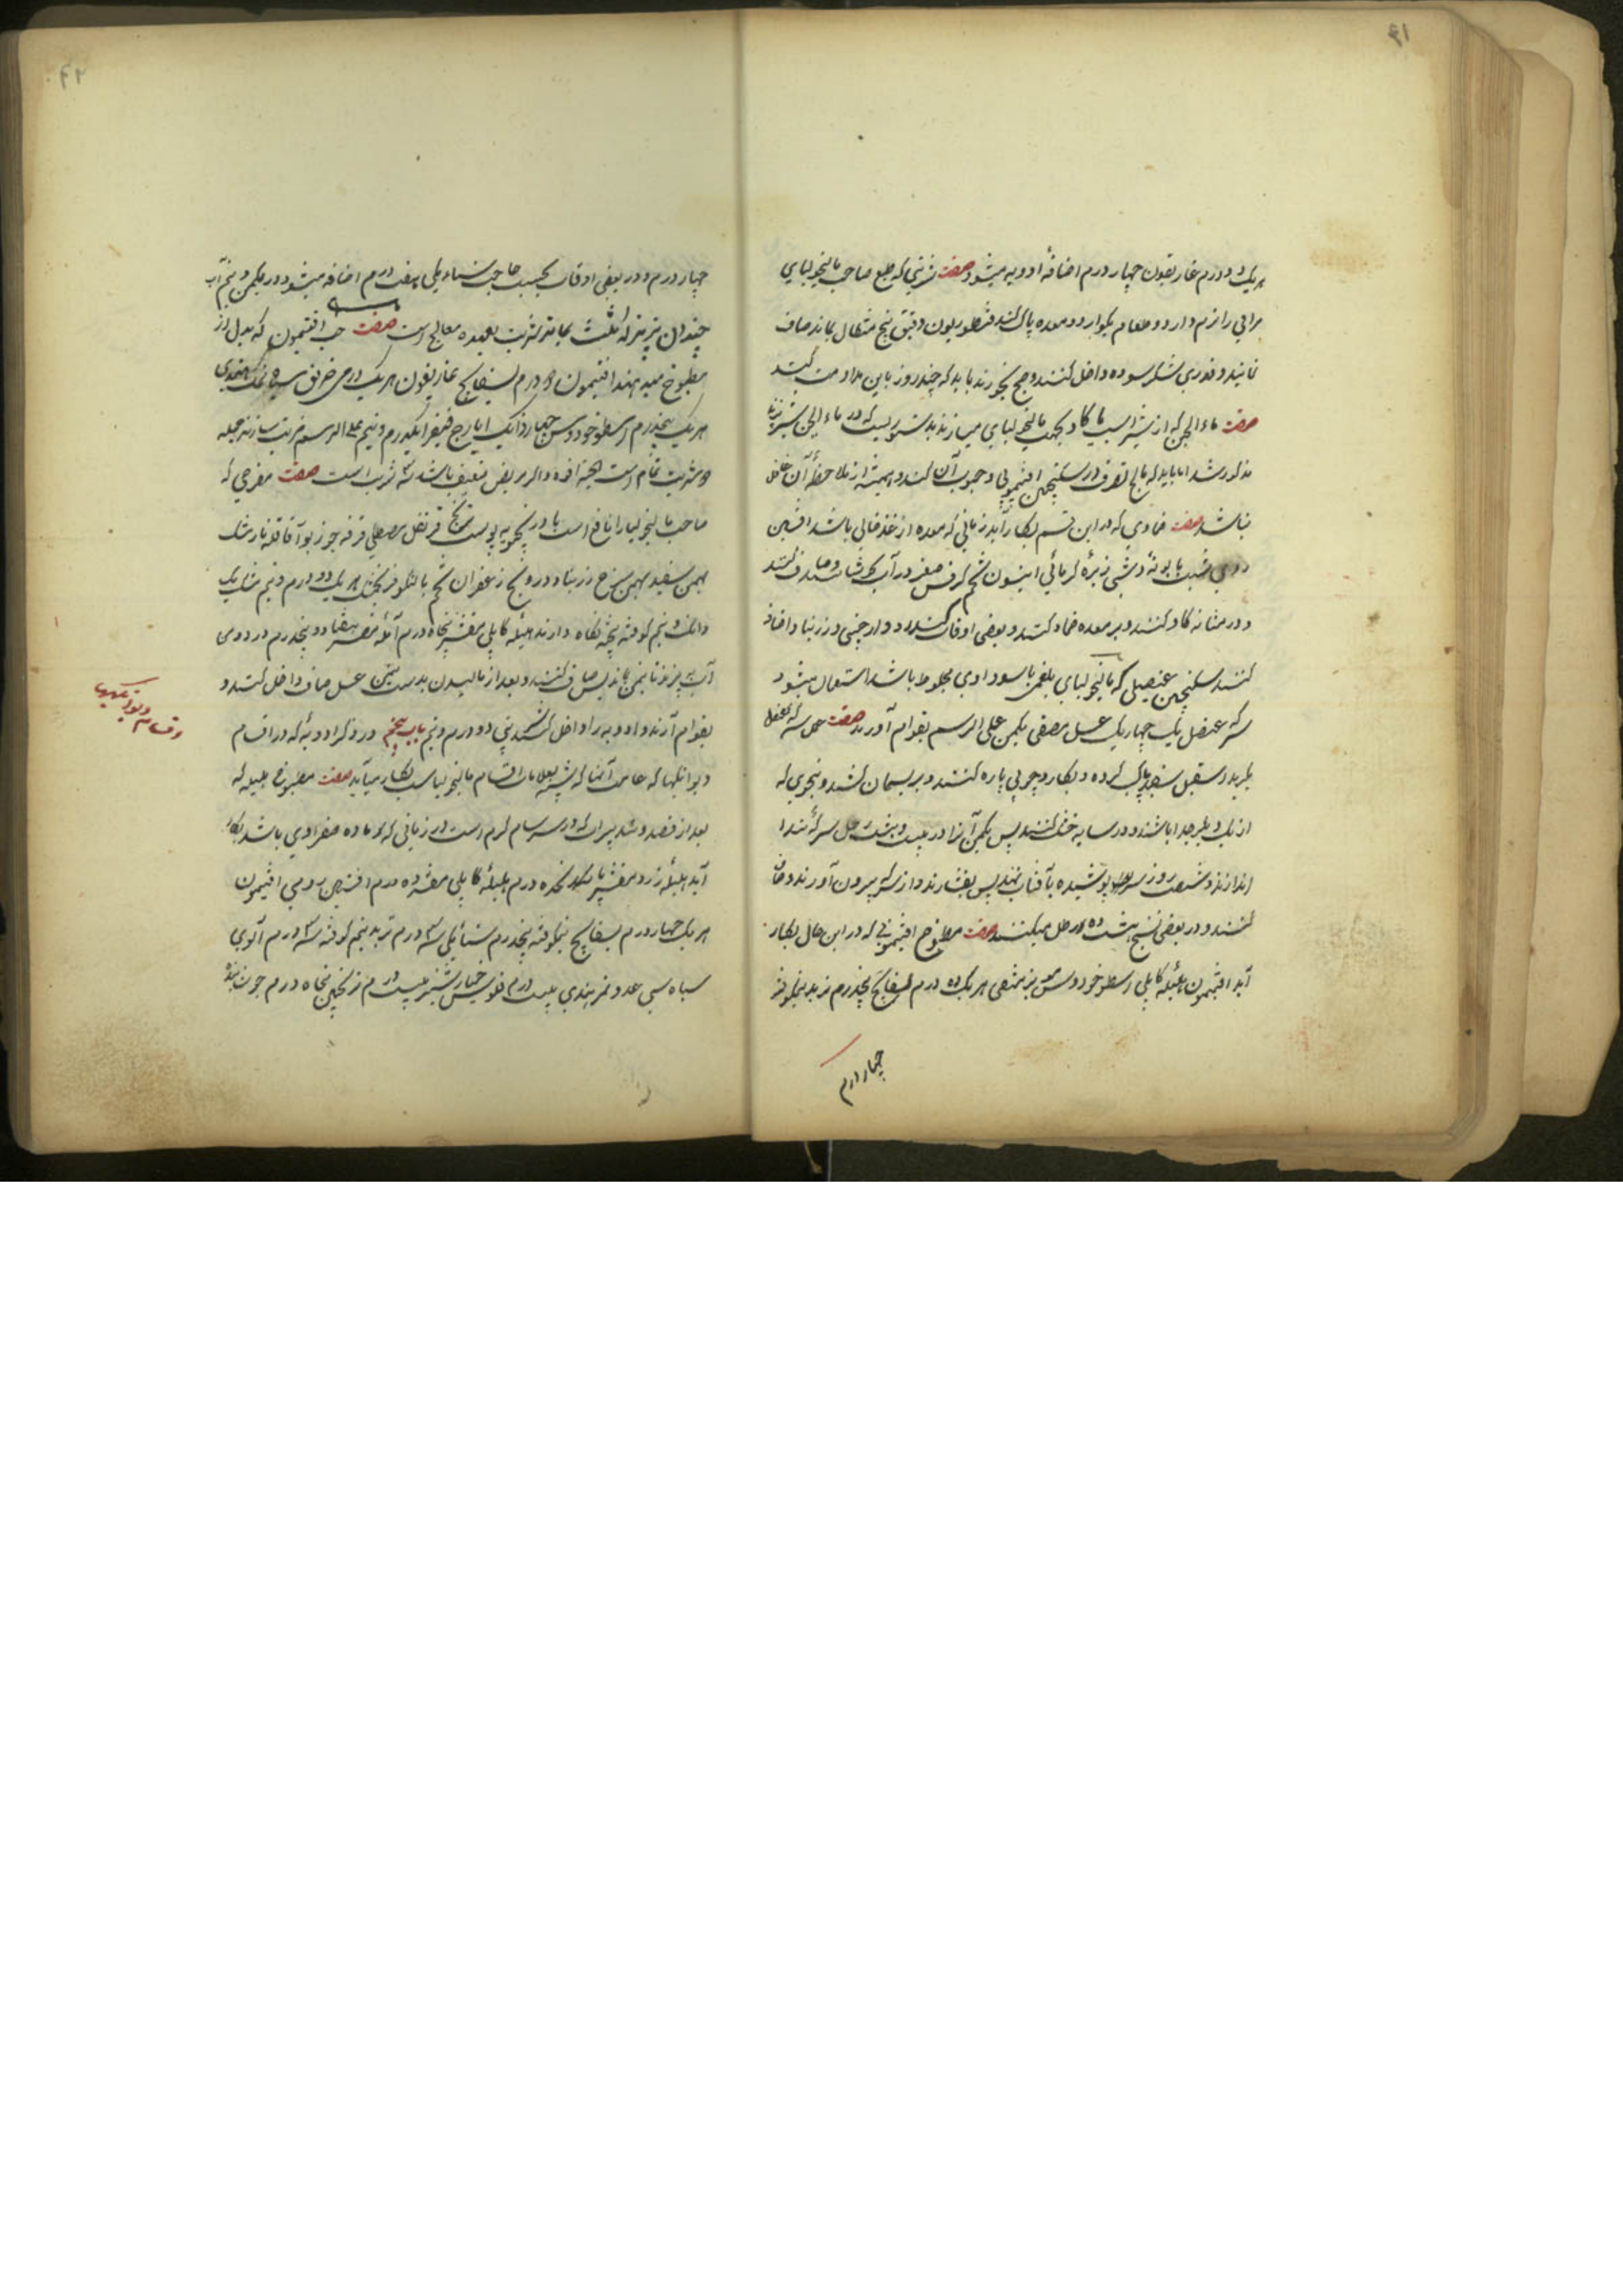 ۶۱
هر یک دو درم غاریقون چهار درم اضافهٔ ادویه میشود صفت شربتی که طبع صاحب مالیخولیای
مراقی را نرم دارد و طعام بگوارد و معده پاک کند قنطوریون دقیق پنج مثقال بماند صاف
نمایند و قدری شکر سوده داخل کنند و صبح بخورند باید که چند روز باین مداومت کنند
صفت ماء الجبن که از شیر اسب یا گاو بجهت مالیخولیای میسازند بدستوریست که در ماء الجبن شیر بز
مذکور شد اما باید که معالج تصرف در سکنجبین افتیمونی و حبوب آن کند و همیشه از ملاحظهٔ آن غافل
نباشد صفت ضمادی که در این قسم بکار آید زمانی که معده از غذا خالی باشد افسنتین
رومی شبت بابونهٔ دشتی زیرهٔ کرمانی انیسون تخم کرفس صعتر در آب بجوشانند و صاف کنند
و در مثانه گاو کنند و بر معده ضماد کنند و بعضی اوقات دارچینی و زرنباد اضافه
کنند سکنجبین عنصلی که مالیخولیای بلغمی با سوداوی مخلوط باشد استعمال میشود
سرکه عنصل یک چهاریک عسل مصفی یکمن علی الرسم بقوام آورند صفت عمل سرکه عنصل
بگیرند سقیل سفید پاک کرده و بکارد چوبی پاره کنند و بریسمان کشند و بنحوی که
از یک دیگر جدا باشند و در سایه خشک کنند پس یکمن آنرا در بیست و هشت رطل سرکهٔ تند
اندازند و شصت روز سر پوشیده بآفتاب نهند پس بفشارند و از سرکه بیرون آورند و صاف
کنند و در بعضی نسخ هشت ده رطل میکنند صفت مطبوخ افتیمونی که در این حال بکار
آید افتیمون هلیلهٔ کابلی اسطوخودوس مویز منقی هر یک ده درم بسفایج پنجدرم تربد نیمکوفته
چهار درم
۶۲
چهار درم و در بعضی اوقات بحسب حاجت سناء مکی هفت درم اضافه میشود در یکمن و نیم آب
چندان بپزند که ثلث بماند شربت بعهده معالج است صفت حب افتیمون که بدل از
مطبوخ میدهند افتیمون ده درم بسفایج غاریقون هر یک درمی خربق سیاه نمک هندی
هر یک نیمدرم اسطوخودوس چهار دانگ ایارج فیقرا یکدرم و نیم علی الرسم مرتب سازند جمله
دو شربت تمام است و اگر مریض ضعیف باشد سه شربت است صفت مفرحی که
صاحب مالیخولیا را نافع است بادرنجبویه پوست ترنج قرنفل مصطکی قرفه جوز بوا قاقله نارمشک
بهمن سفید بهمن سرخ زرنباد درونج زعفران تخم بالنگو فرنجمشک هر یک دو درم و نیم مشک یک
دانگ و نیم کوفته بیخته نگاه دارند هلیلهٔ کابلی مقشر پنجاه درم آملهٔ مقشر هفتاد و پنجدرم در دو من
آب بپزند تا بنیمن بماند پس صاف کنند و بعد از مالیدن بدست یکمن عسل صاف داخل کنند و
بقوام آرند و ادویه را داخل کنند شربتی دو درم و نیم باب پنجم در ذکر ادویهٔ که در اقسام
دیوانگیها که علامت آنها که شبیه بعلامات اقسام مالیخولیاست بکار میآید صفت مطبوخ هلیله که
بعد از فصد و تدبیرات که در سرسام گرم است در زمانی که ماده صفراوی باشد بکار
آید هلیلهٔ زرد مقشر پانزده درم هلیلهٔ کابلی مقشر ده درم افسنتین رومی افتیمون
هر یک چهار درم بسفایج نیمکوفته پنجدرم سناء مکی سه درم تربد نیم کوفته سه درم آلوی
سیاه سی عدد تمر هندی بیست درم فلوس خیارشنبر بیست درم ترنجبین پنجاه درم
اقسام دیوانگیها